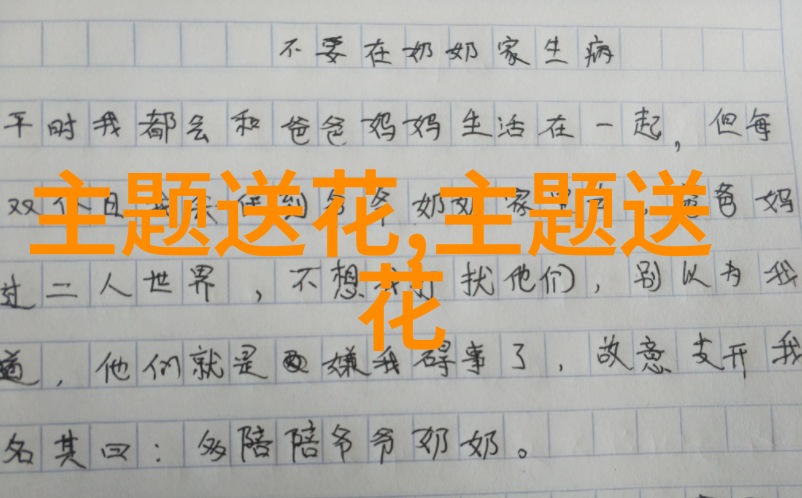 不要在奶奶家生病
平时我都会和爸爸妈妈生活在一起，但每
双休日 爷爷奶奶家 爸妈
过二人世界，不想我打扰他们，别以为我
道，他们就是嫌我碍事了，故意支开我
名其曰：多陪陪爷爷奶奶。
主题送花,主题送
花